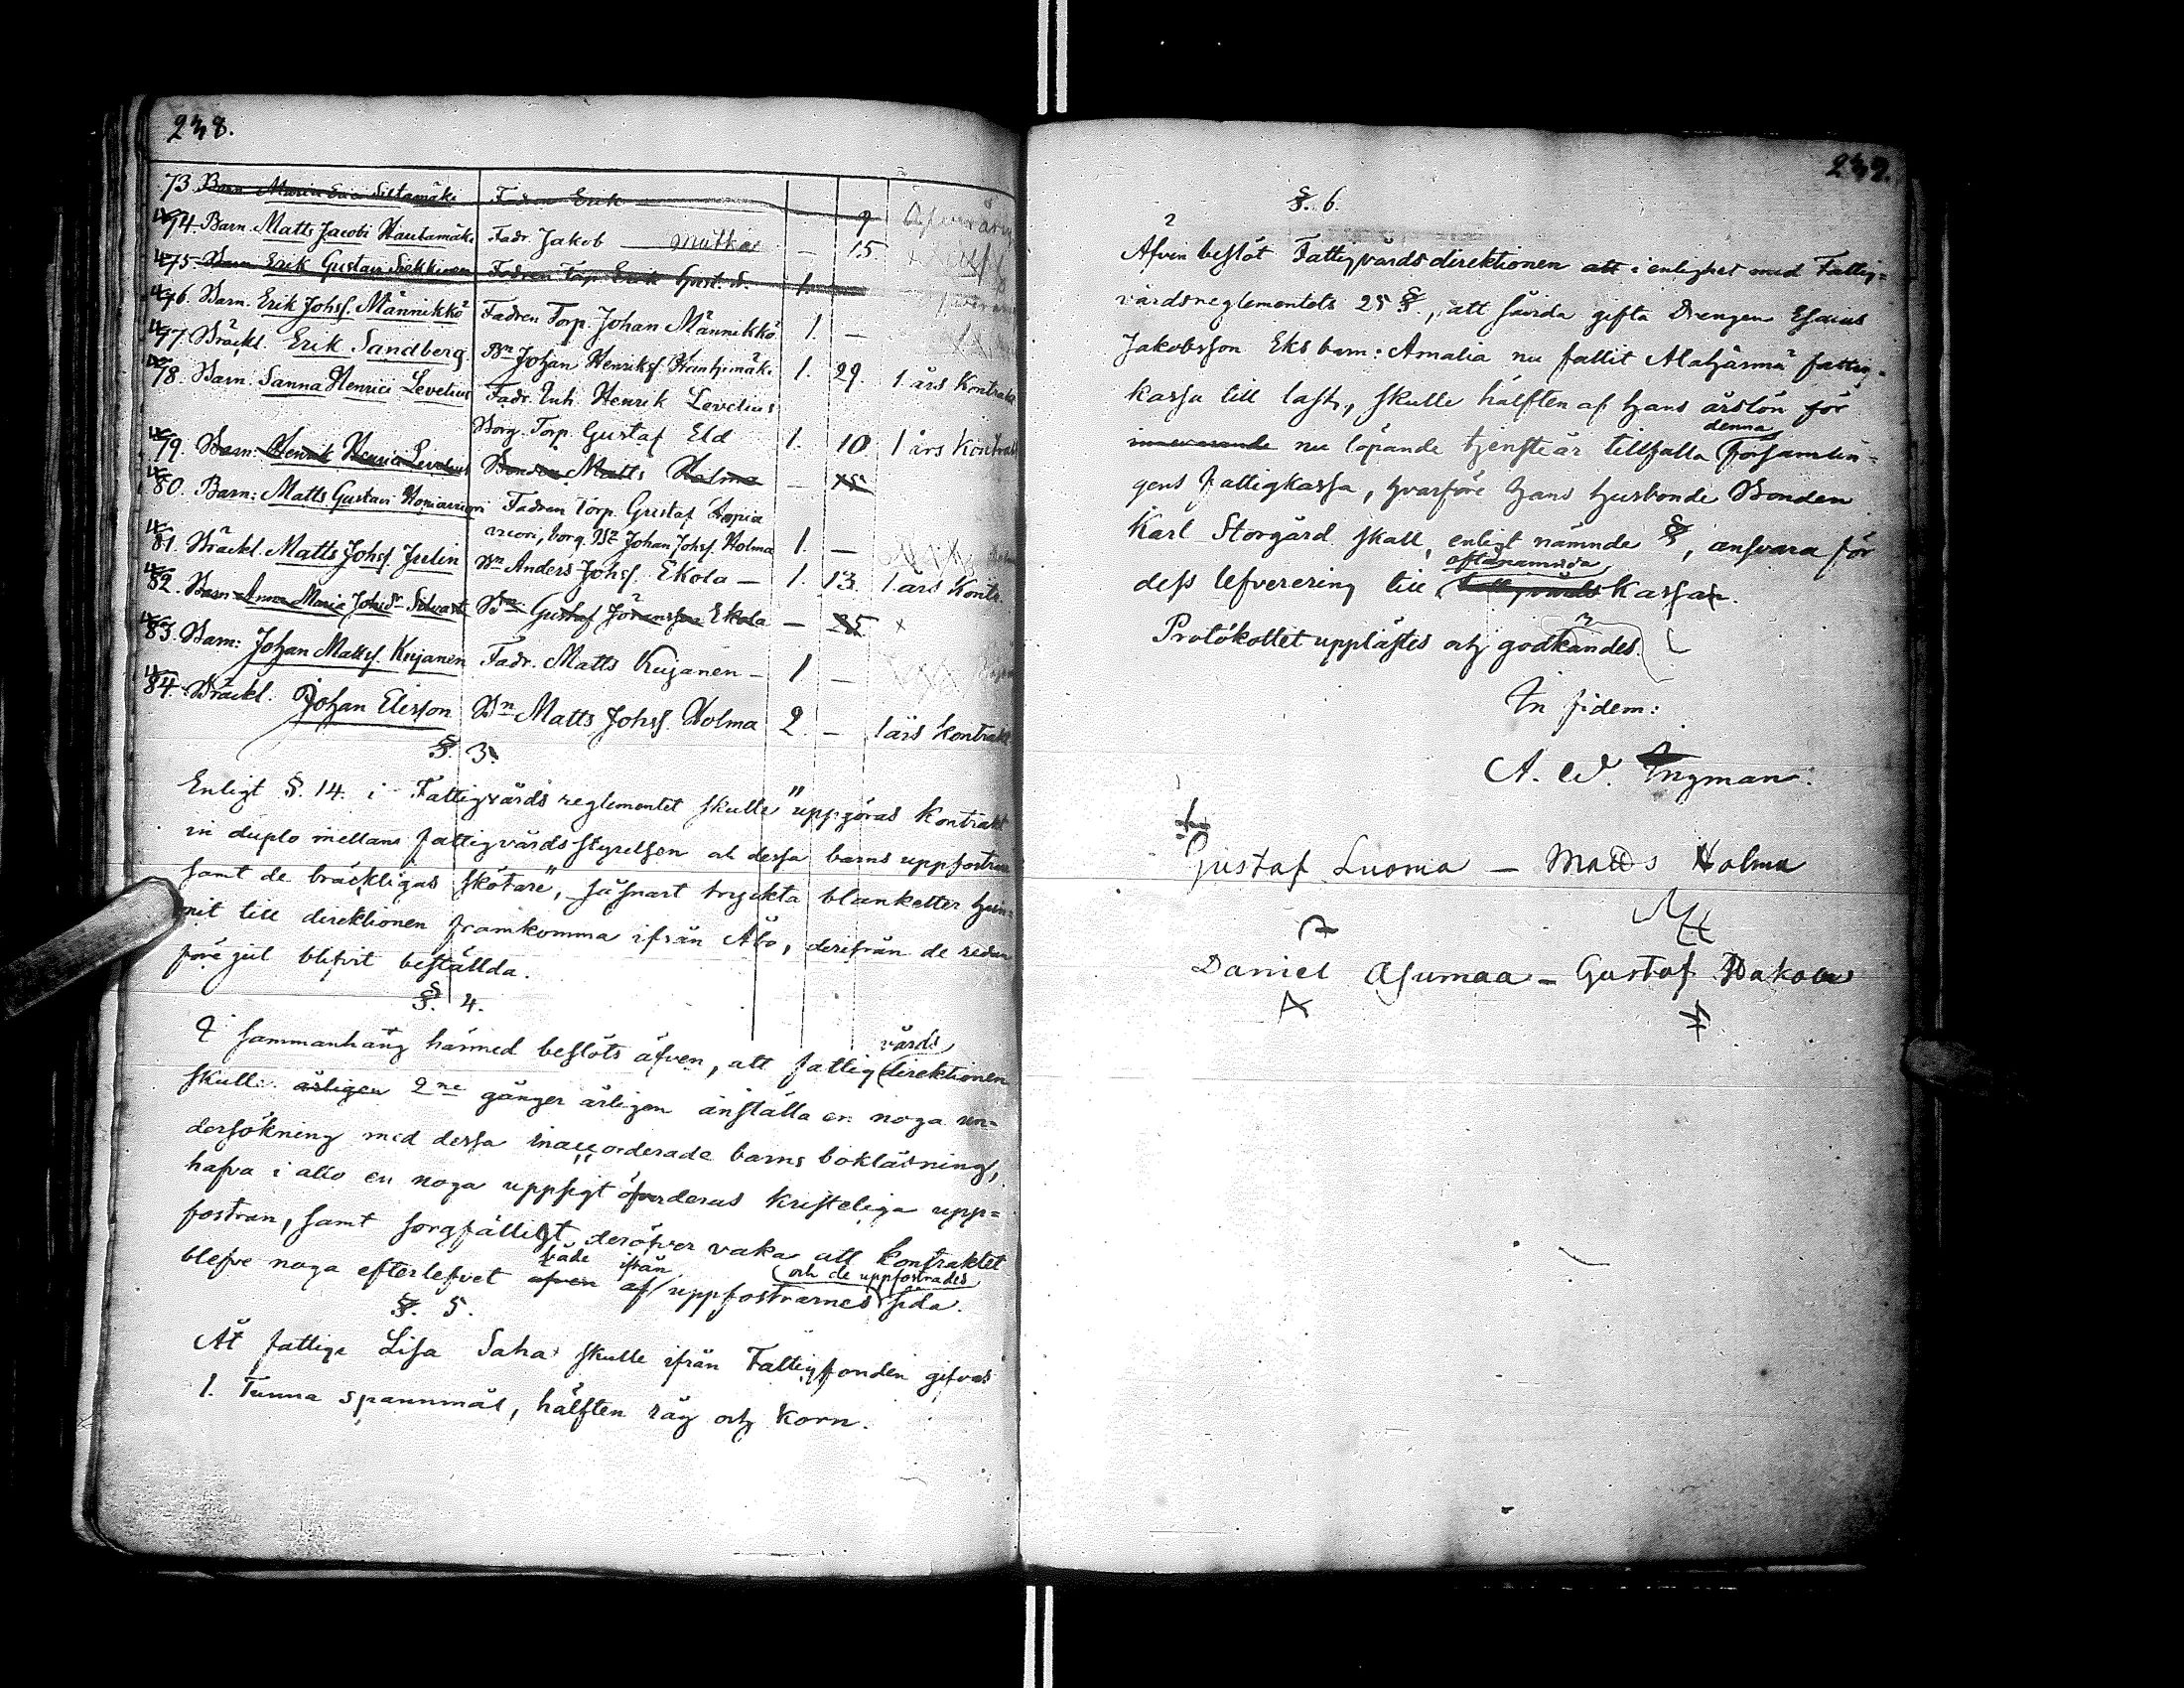 238.
73. Barn Maria Siltamäki Fadren Erik 9
74. Barn. Matts Jacobi Hautamäki Fadr. Jakob — mutkas — 15
75. Barn Erik Gustavi Fadren Torp. Erik Gust. S. 1.
76. Barn. Erik Johsf. Männikkö Fadren Torp. Johan Männikkö 1. —
77. Bräckl. Erik Sandberg Bn Johan Henriksf. 1. 29. 1 års Kontrakt
78. Barn. Sanna Henrici Levelius Fadr. Inh. Henrik Levelius
Borg. Torp. Gustaf Eld 1. 10 1 års Kontrakt
79. Barn: Henrik Henrici Levelius Bonden Matts Holma — 15
80. Barn: Matts Gustavi Fadren Torp. Gustaf
vuori, borg. Bn Johan Johsf. Holma 1. —
81. Bräckl. Matts Johsf. Julin Bn Anders Johsf. Ekola — 1. 13. 1 års Kontr.
82. Barn Anna Maria Bn Gustaf Göransson Ekola — 25 x
83. Barn: Johan Mattsf. Kujanen Fadr. Matts Kujanen — 1 —
84. Bräckl. Johan Elisson Bn Matts Johsf. Holma 2. — 1 års kontrakt
§. 3.
Enligt §. 14. i Fattigvårds reglementet skulle "uppgöras Kontrakt
in duplo mellan fattigvårdsstyrelsen och dessa barns uppfostrare
samt de bräckligas skötare", såsnart tryckta blanketter hun-
nit till direktionen framkomma ifrån Åbo, derifrån de redan
före jul blifvit beställda.
§. 4.
I sammanhang härmed beslöts äfven, att fattigvårdsdirektionen
skulle årligen 2ne gånger årligen anställa en noga un-
dersökning med dessa inackorderade barns bokläsning,
hafva i allo en noga uppsigt öfver deras kristeliga upp-
fostran, samt sorgfälligt deröfver vaka att kontraktet
blefve noga efterlefvet äfven både ifrån af uppfostrarnes och de uppfostrades sida.
§. 5.
Åt fattiga Lisa Saha skulle ifrån Fattigfonden gifvas
1. Tunna spannmål, hälften råg och korn.
239.
§. 6.
Äfven beslöt Fattigvårdsdirektionen att i enlighet med Fattig-
vårdsreglementets 25 §., att såvida gifta Drengen Esaias
Jakobsson Eks barn: Amalia nu fallit Alahärmä fattig-
kassa till last, skulle hälften af hans årslön för
innevarande nu löpande tjensteår tillfalla denna Församlin-
gens fattigkassa, hvarföre hans husbonde Bonden
Karl Storgård skall, enligt nämnde §, ansvara för
dess lefverering till oftanämnda fattigvårds Kassan.
Protokollet upplästes och godkändes.
In fidem:
A. W. Ingman.
Gustaf Luoma — Matts Holma
Daniel Asumaa — Gustaf